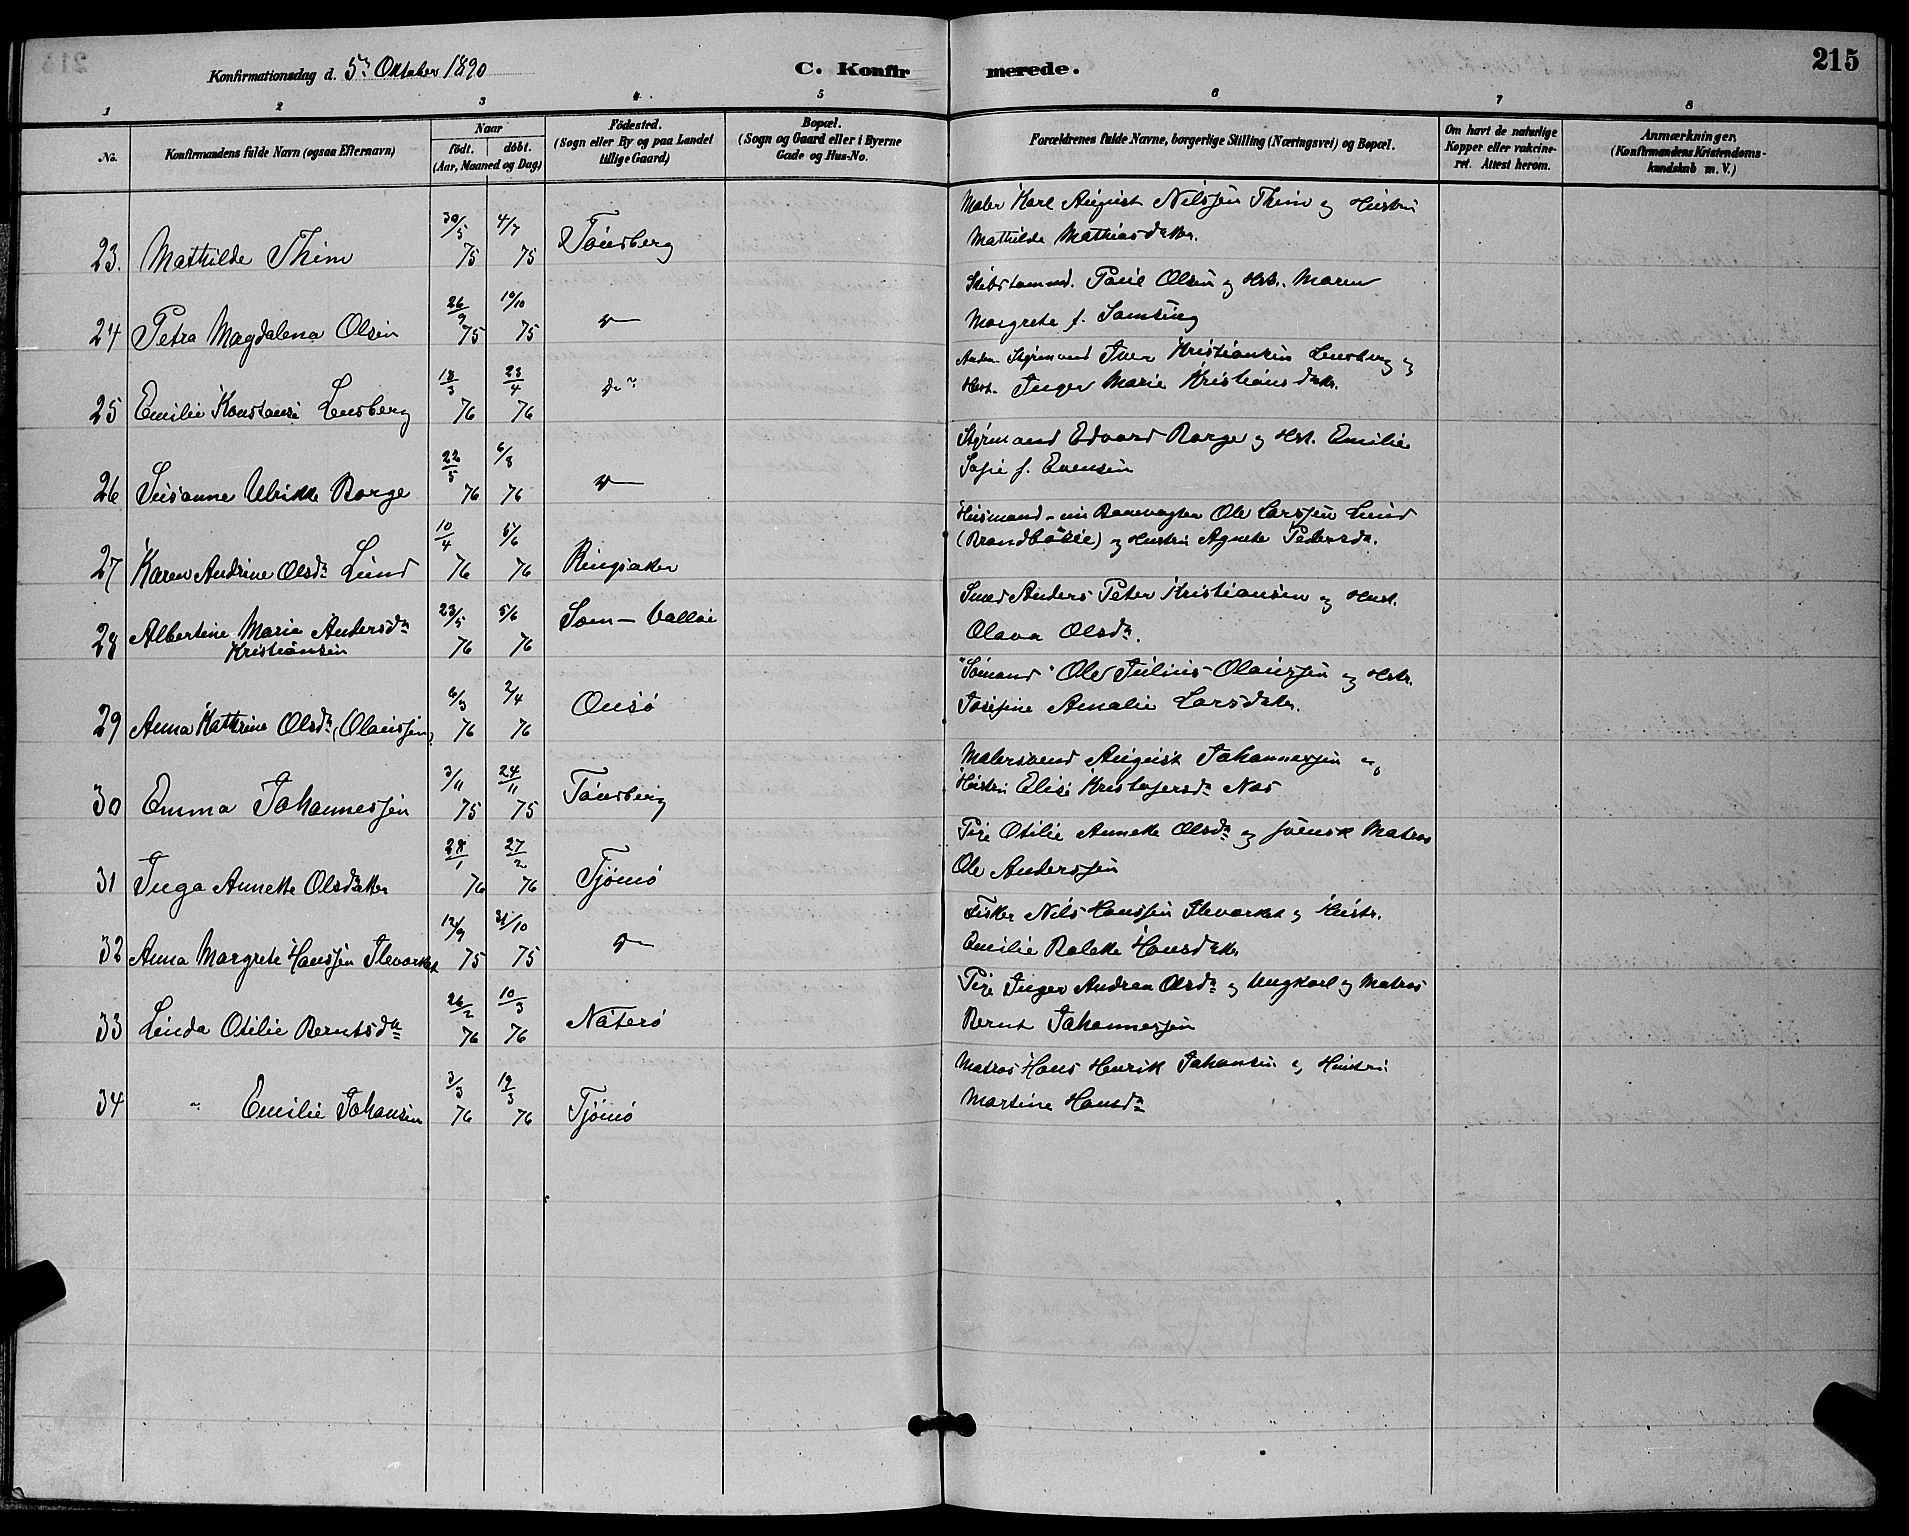 Konfirmationsdag d. 5n Oktober 1890
C. Konfirmerede.
215
1 2 3 4 5 6 7 8
No.
Konfirmandens fulde Navn (ogsaa Efternavn)
Naar
født. døbt.
(Aar, Maaned og Dag)
Fødested.
(Sogn eller By og paa Landet
tillige Gaard)
Bopæl.
(Sogn og Gaard eller i Byerne
Gade og Hus-No.
Forældrenes fulde Navne, borgerlige Stilling (Næringsvei) og Bopæl.
Om havt de naturlige
Kopper eller vakcine-
ret. Attest herom.
Anmærkninger.
(Konfirmandens Kristendoms-
kundskab m. V.)
23. Mathilde Thim 30/5 75 4/7 75 Tönsberg
Maler Karl August Nilssen Thim og Hustru
Mathilde Mathiasdatter.
24 Petra Magdalena Olsen 26/9 75 10/10 75 do
Skibstømmd. Paul Olsen og Hst. Maren
Margrete f. Samsing
25 Emilie Konstanse Lensberg 18/3 76 23/4 76 do
Styrmand Iver Kristiansen Lensberg og
Hust. Inger Marie Kristiansdatter.
26 Susanne Ulrikke Borge 22/5 76 6/8 76 do
Styrmand Edvard Borge og Hst. Emilie
Sofie f. Evensen
27 Karen Andrine Olsdr Lund 10/4 76 5/6 76 Ringsaker
Husmand - nu Banevogter Ole Larssen Lund
(Brandbökie) og Hustru Agnete Pedersdr.
28 Albertine Marie Andersdr
Kristiansen 23/5 76 5/6 76 Sem - Vallöe
Smed Anders Peter Kristiansen og Hust.
Olava Olsdr.
29 Anna Kathrine Olsdr (Olaussen) 6/3 76 2/4 76 Onsö
"Sömand" Ole Julius Olaussen og Hstr.
Josefine Amalie Larsdatter.
30 Emma Johannessen 3/11 75 24/11 75 Tönsberg
Malersvend August Johannessen og
Hustru Elise Kristofersdr Næs
31 Inga Annette Olsdatter 28/1 76 27/2 76 Tjömö
Pige Otilie Annette Olsdr og svensk Matros
Ole Anderssen
32 Anna Margrete Hanssen Ilevarket 12/9 75 31/10 75 do
Fisker Nils Hanssen Ilevarket og Hustr.
Emilie Bolette Hansdatter
33 Linda Otilie Berntsdtr 26/2 76 10/3 76 Nöterö
Pige Inger Andrea Olsdr og Ungkarl og Matros
Bernt Johannessen
34 " Emilie Johansen 3/3 76 19/3 76 Tjömö
Matros Hans Henrik Johansen og Hustru
Martine Hansdr